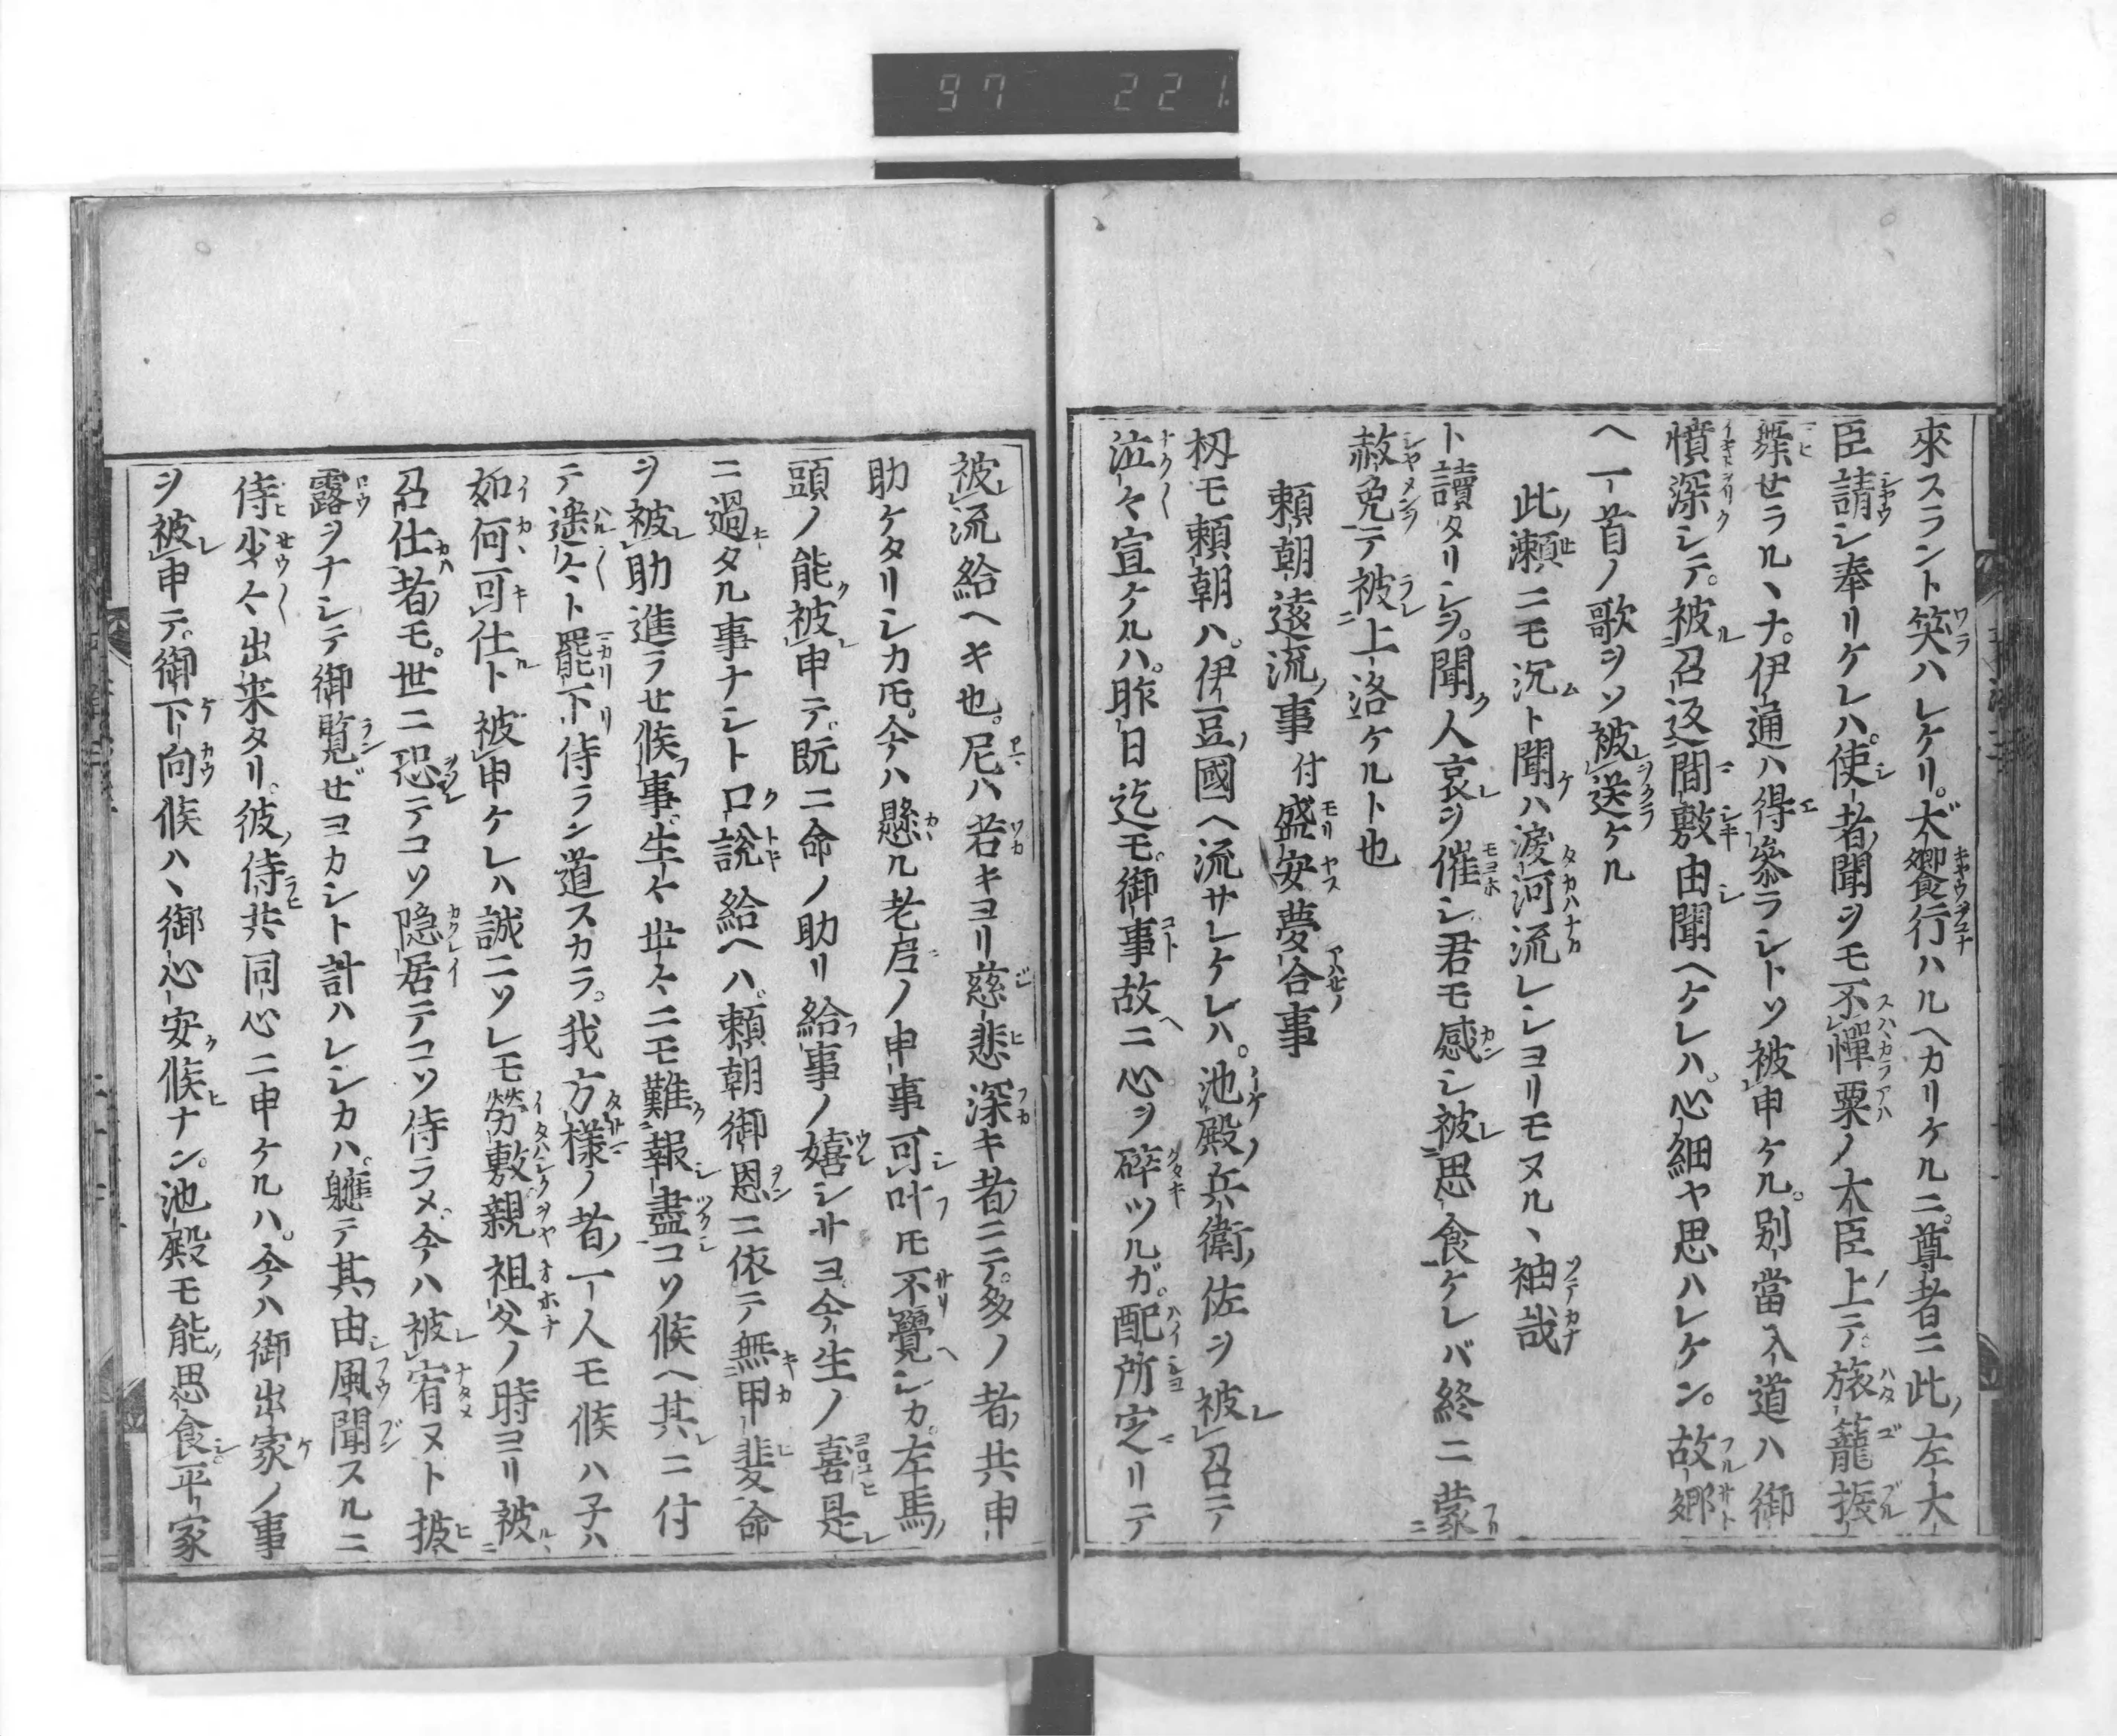 97 221.
來スラント笑ハレケリ。大饗行ハルヘカリケルニ。尊者ニ此ノ左大
臣請シ奉リケレハ。使者聞ヲモ不憚粟ノ大臣上テ。旅籠振
舞セラルヽナ。伊通ハ得參ラシトソ被申ケル。別當入道ハ御
憤深シテ。被召返間敷由聞ヘケレハ。心細ヤ思ハレケン。故郷
ヘ一首ノ歌ヲソ被送ケル
此瀬ニモ沉ト聞ハ涙河流レシヨリモヌルヽ袖哉
ト讀タリシヲ。聞人哀ヲ催シ君モ感シ被思食ケレバ終ニ蒙
赦免テ被上洛ケルト也
頼朝遠流ノ事 付 盛安夢合事
扨モ頼朝ハ。伊豆ノ國ヘ流サレケレハ。池殿ノ兵衛佐ヲ被召テ
泣々宣ケルハ。昨日迄モ。御事故ニ心ヲ碎ツルガ。配所定リテ
被流給ヘキ也。尼ハ若キヨリ慈悲深キ者ニテ。多ノ者共申
助ケタリシカ𪜈。今ハ懸ル老尼ノ申事可叶𪜈不覺シカ。左馬
頭ノ能被申テ。既ニ命ノ助リ給事ノ嬉シサヨ。今生ノ喜是
ニ過タル事ナシト口説給ヘハ。頼朝御恩ニ依テ無甲斐命
ヲ被助進ラセ候事。生々世々ニモ難報盡コソ候ヘ其ニ付
テ遙々ト罷下侍ラン道スカラ。我方樣ノ者一人モ候ハ子ハ
如何可仕ト被申ケレハ誠ニソレモ勞敷親祖父ノ時ヨリ被
召仕者モ。世ニ恐テコソ隠居テコソ侍ラメ。今ハ被宥ヌト披
露ヲナシテ御覧ゼヨカシト計ハレシカハ。軈テ其由風聞スルニ
侍少々出来タリ。彼侍共同心ニ申ケルハ。今ハ御出家ノ事
ヲ被申テ。御下向候ハヽ御心安候ナン。池殿モ能思食平家